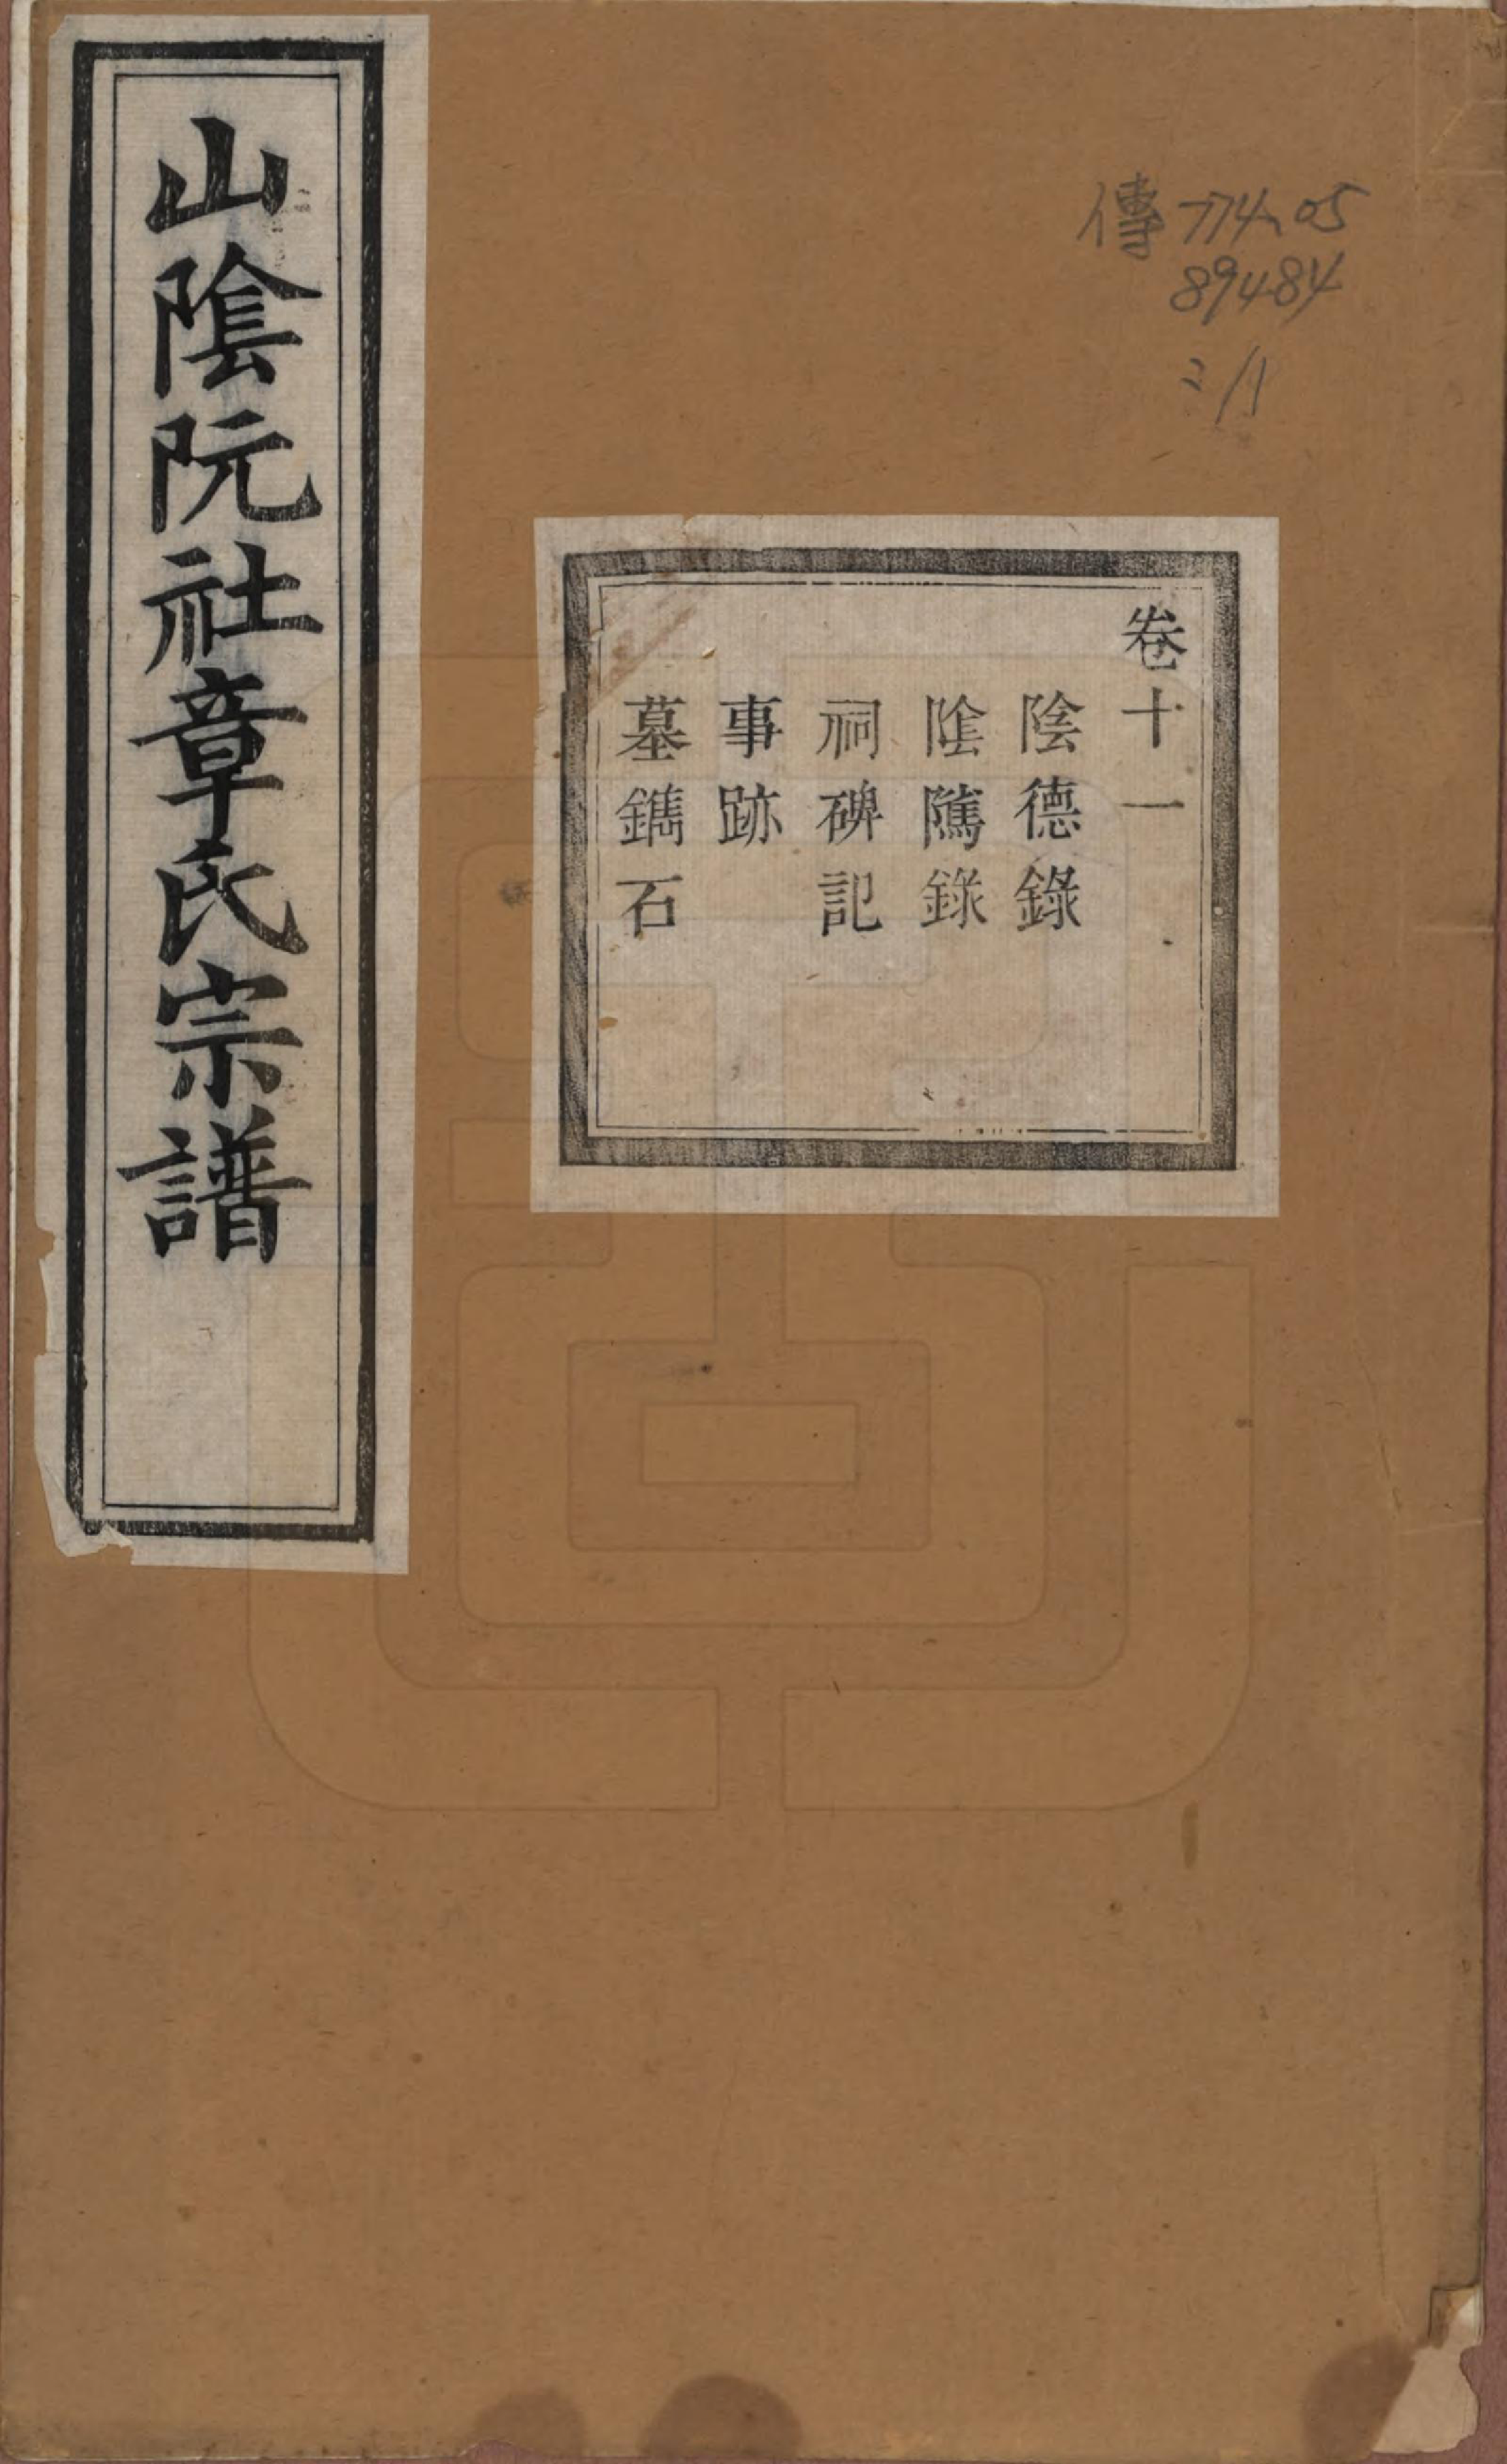 傳 774.05
89484
:11
卷十一
陰德錄
陰騭錄
祠碑記
事跡
墓鐫石
山陰阮社章氏宗譜